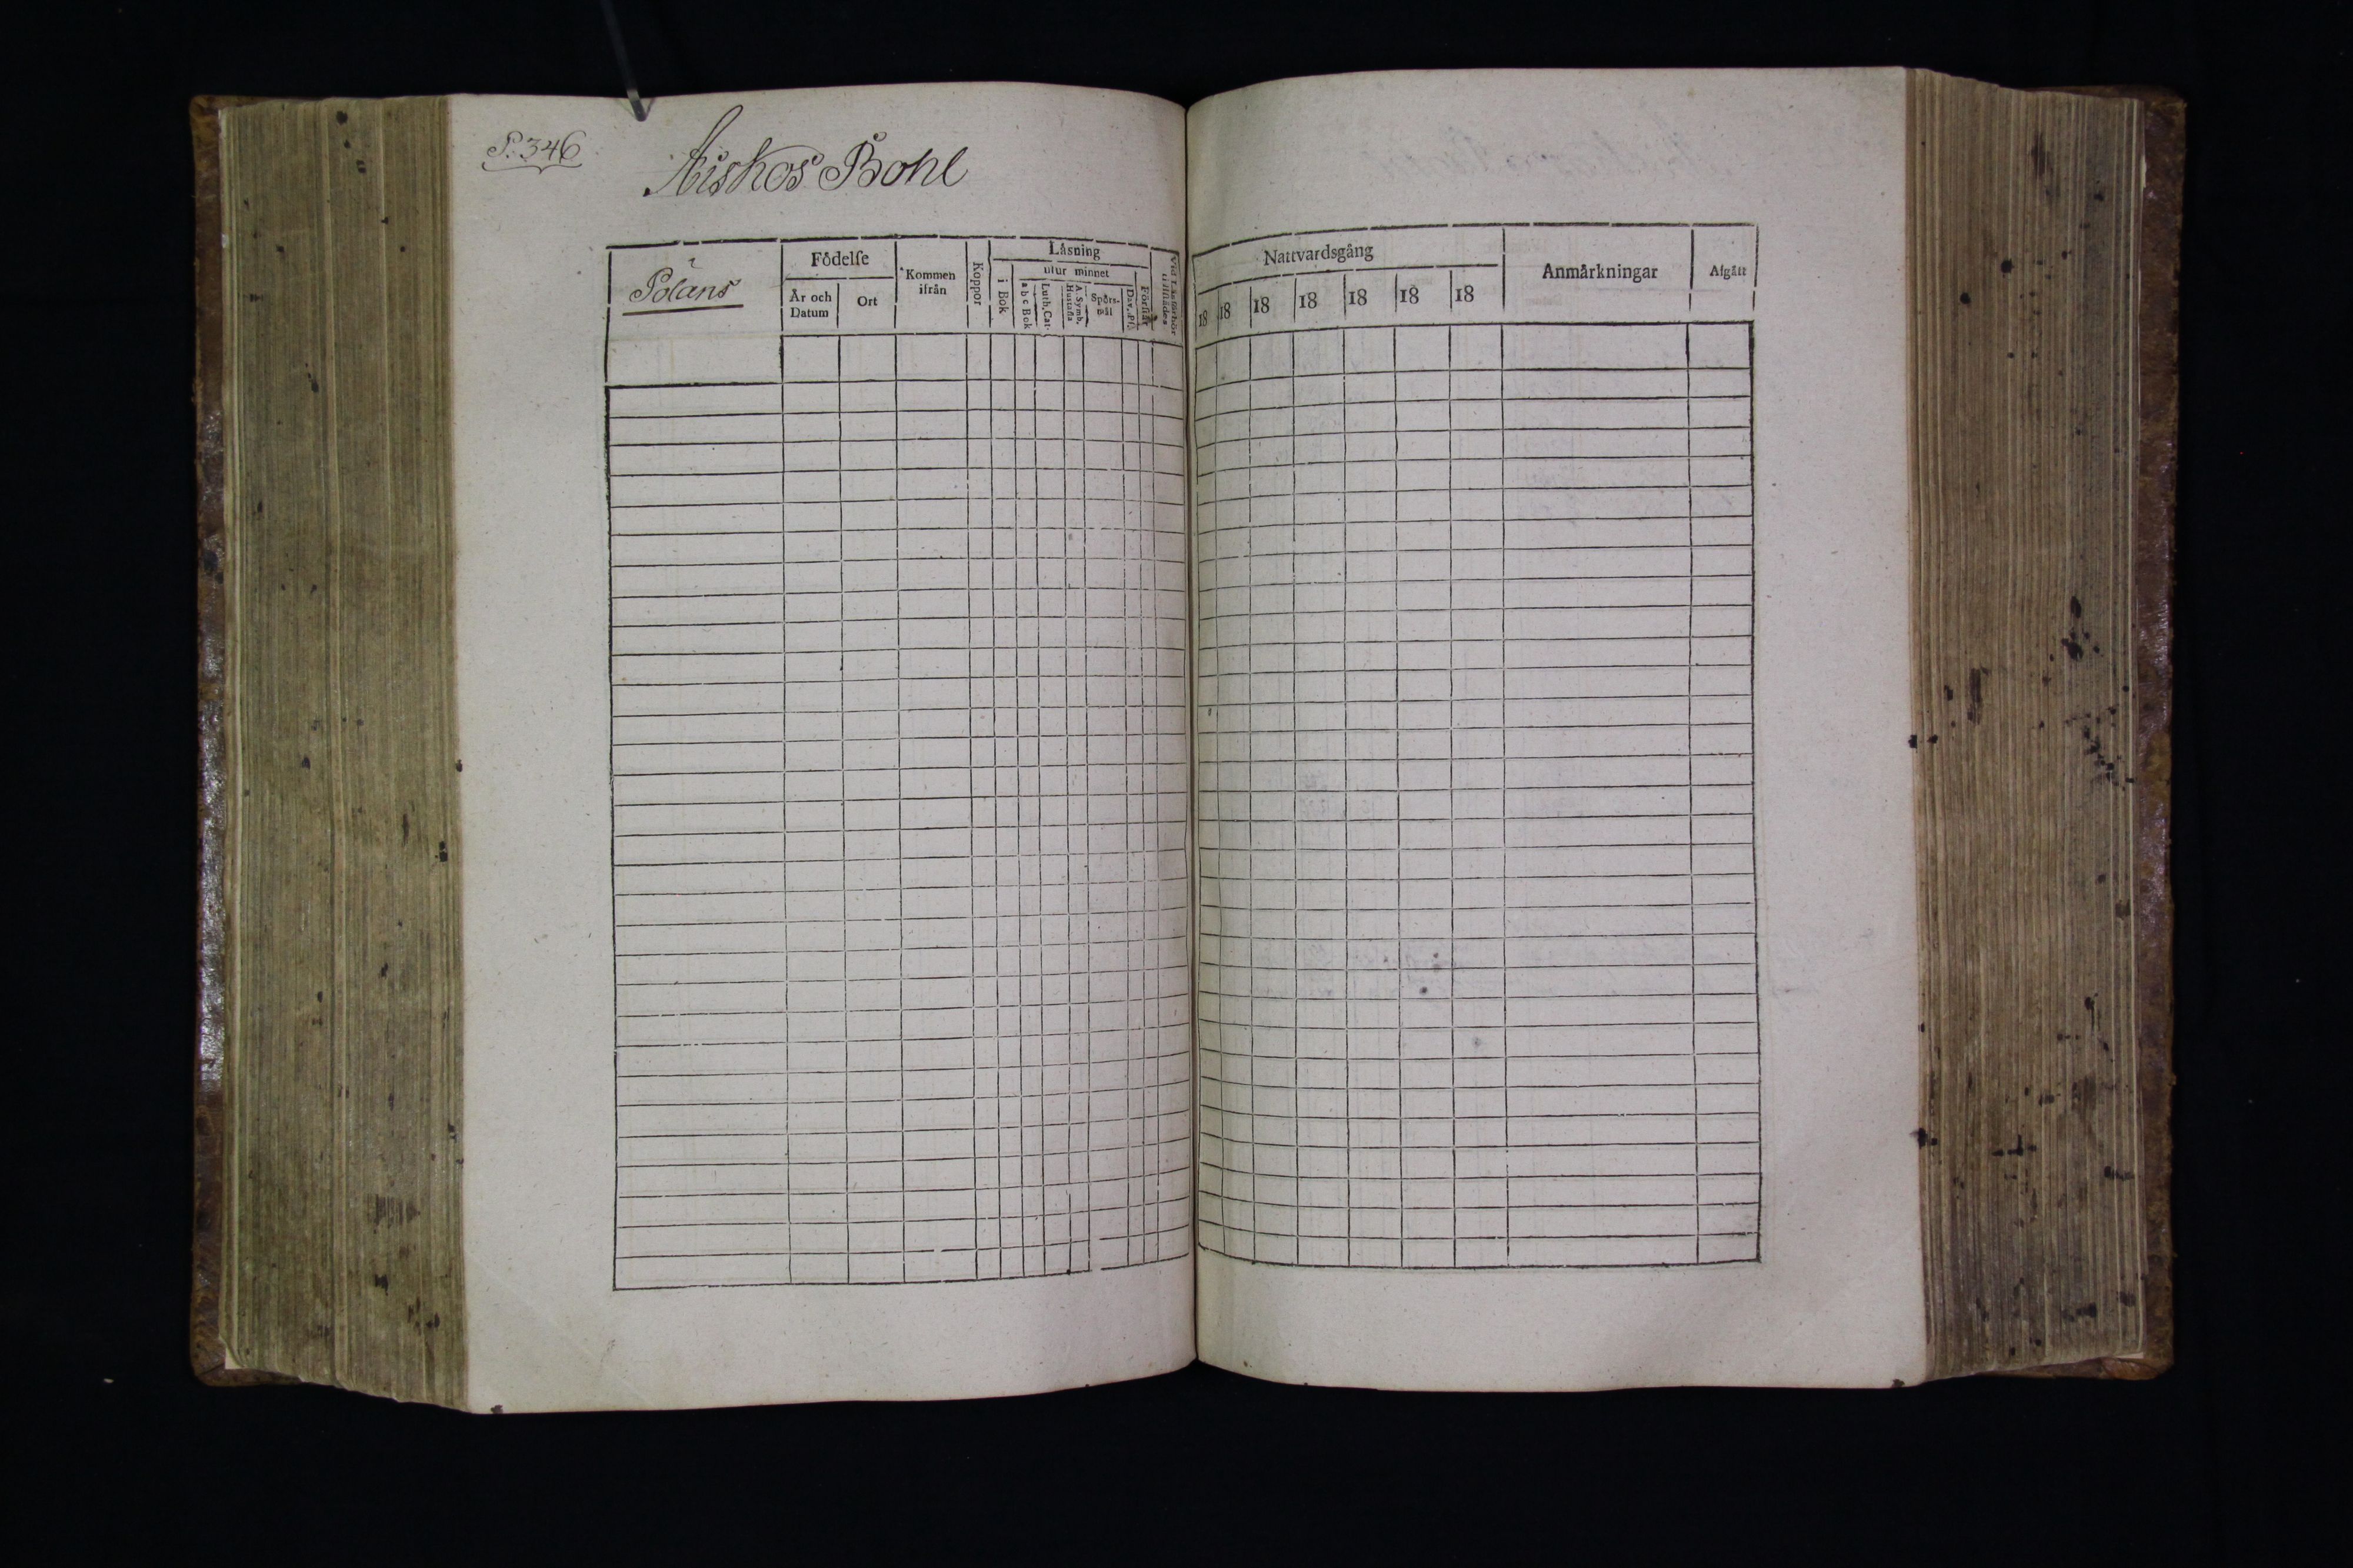 P. 346
Åiskos Bohl
Polans
Födelse
År och Datum
Ort
Kommen ifrån
Koppor
Läsning
i Bok
utur minnet
a b c Bok
Luth. Cat.
A. Symb. Hustafla
Spörs-mål
Dav. Ps.
Förstår
Vid Läsförhör tillstädes
Nattvardsgång
18 18 18 18 18 18 18
Anmärkningar
Afgått